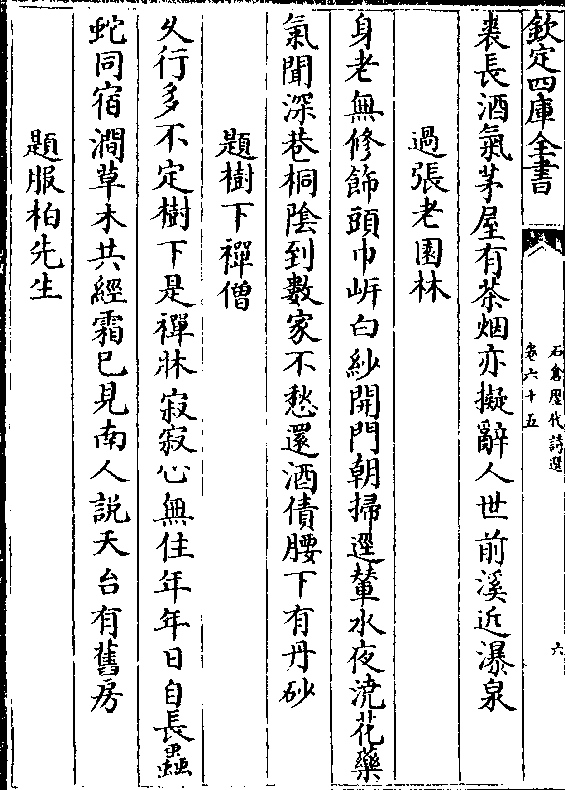 欽定四庫全書
石倉歷代詩選
卷六十五
六
裘長酒氣茅屋有茶烟亦擬辭人世前溪近瀑泉
過張老園林
身老無修飾頭巾㡳白紗開門朝掃逕輦水夜澆花藥
氣聞深巷桐陰到數家不愁還酒債腰下有丹砂
題樹下禪僧
久行多不定樹下是禪牀寂寂心無住年年日自長蟲
蛇同宿澗草木共經霜已見南人説天台有舊房
題服柏先生